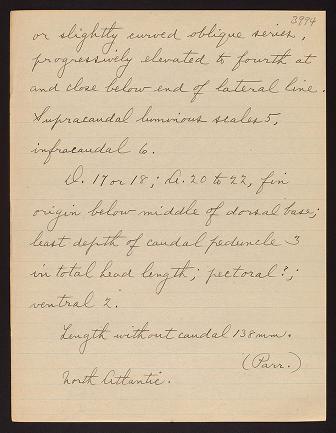 3994
or slightly curved oblique series,
progressively elevated to fourth at
and close below end of lateral line.
Supracaudal luminous scales 5,
infracaudal 6.
D. 17 or 18; A. 20 to 22, fin
origin below middle of dorsal base;
least depth of caudal peduncle 3
in total head length; pectoral ?;
ventral 2.
Length without caudal 138 mm.
(Parr.)
North Atlantic.